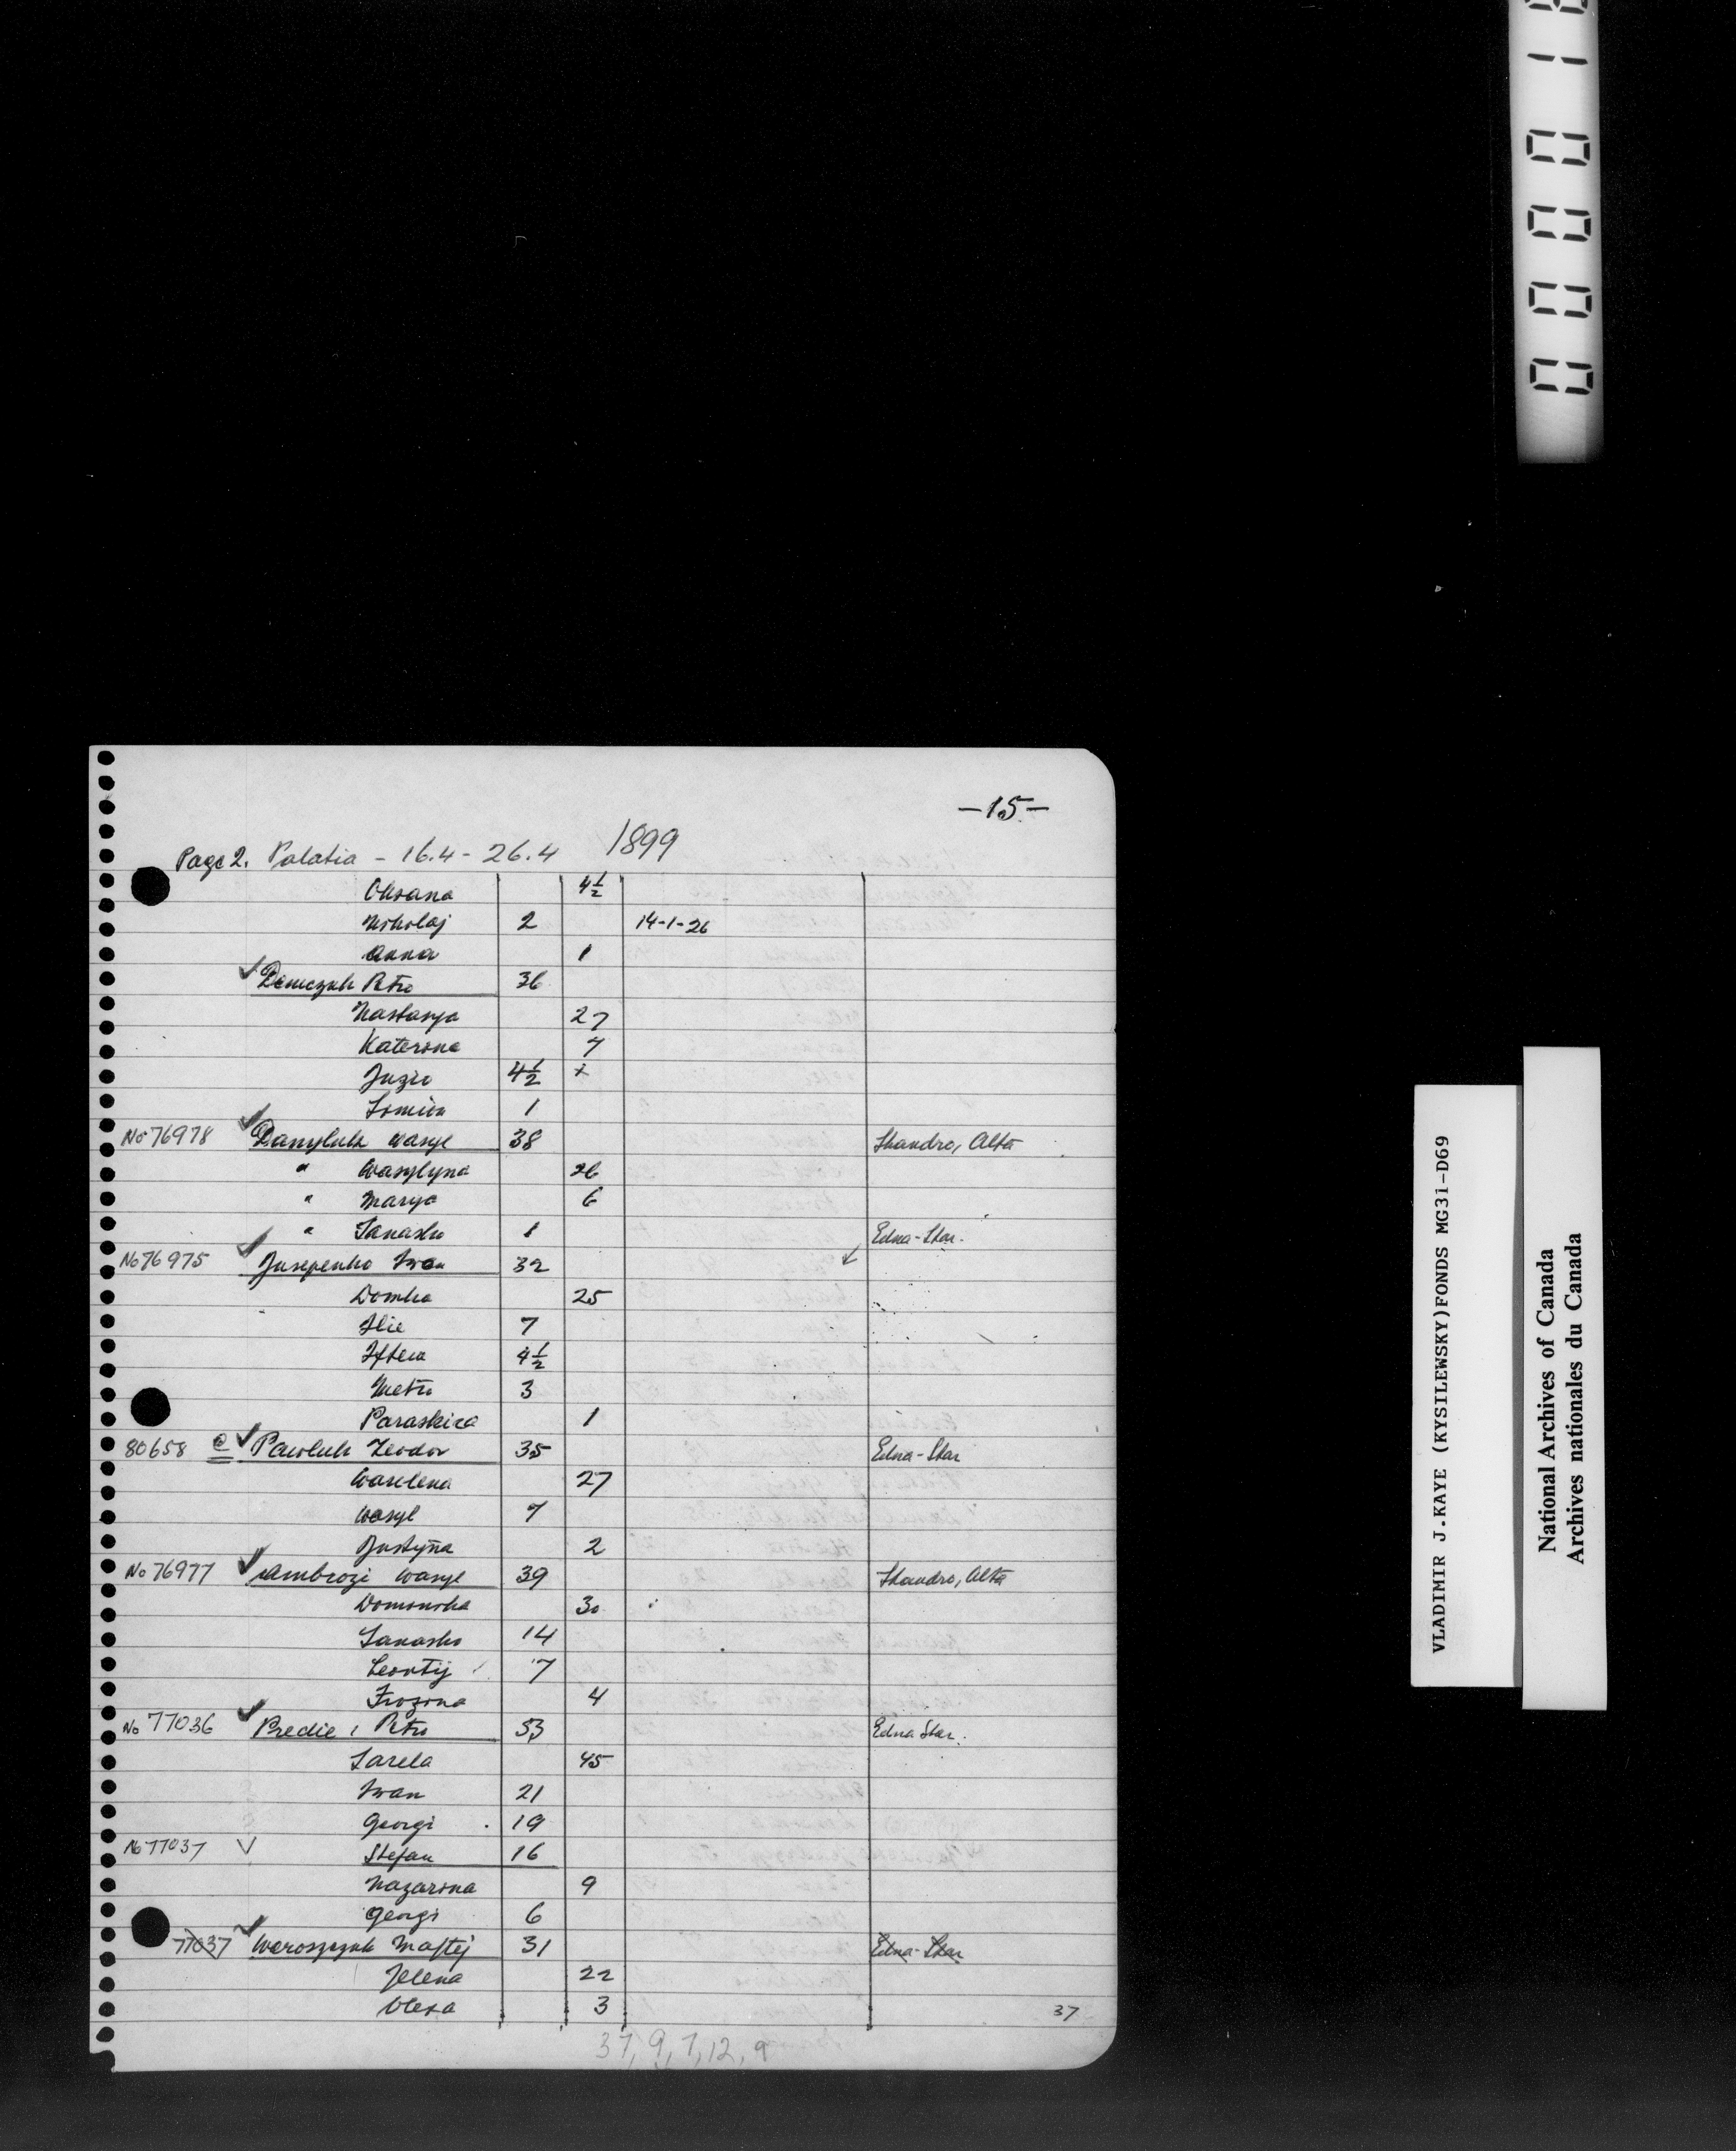 -15-
Page 2. Palatia - 16.4 - 26.4 1899
Oksana 4½
Nikolaj 2 14-1-26
Anna 1
✓ Demczuk Petro 36
Nastasya 27
Katerina 7
Juzio 4½ x
1
No 76978 ✓ Danyluk Wasyl 38 Shandro, Alta
" Wasylyna 26
" Marya 6
" Tanasko 1 Edna-Star.
No 76975 ✓ Jusepenko Iwan 32
Domka 25
Ilie 7
4½
Metro 3
Paraskiva 1
80658 ✓ Pawluk Teodor 35 Edna-Star
Waselena 27
Wasyl 7
Justyna 2
No 76977 ✓ Ambrozi Wasyl 39 Shandro, Alta
30
Tanasko 14
Leontij 7
Frozina 4
No 77036 ✓ Predie, Petro 53 Edna Star.
45
Iwan 21
Georgi 19
No 77037 V Stefan 16
Nazarina 9
Georgi 6
77037 ✓ Woroszczuk Maftej 31 Edna-Star
Jelena 22
Olexa 3
37
37, 9, 7, 12, 9
VLADIMIR J.KAYE (KYSILEWSKY)FONDS MG31-D69
National Archives of Canada
Archives nationales du Canada